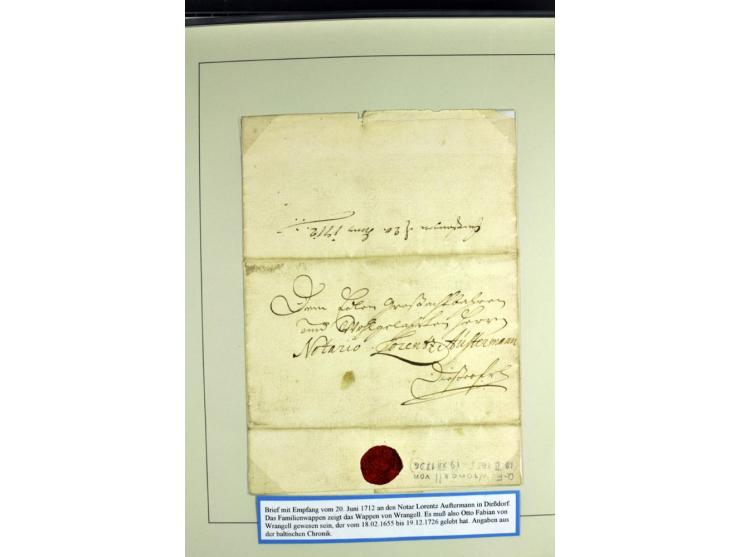 den 20. Juny 1712.
Dem Edlen Großachtbahren
und Wohlgelahrten Herrn
Notario Lorentz Austermann
O-F Wrangell von
18 II 1655 - 19 XII 1726
Brief mit Empfang vom 20. Juni 1712 an den Notar Lorentz Außtermann in Dießdorf.
Das Familienwappen zeigt das Wappen von Wrangell. Es muß also Otto Fabian von
Wrangell gewesen sein, der vom 18.02.1655 bis 19.12.1726 gelebt hat. Angaben aus
der baltischen Chronik.